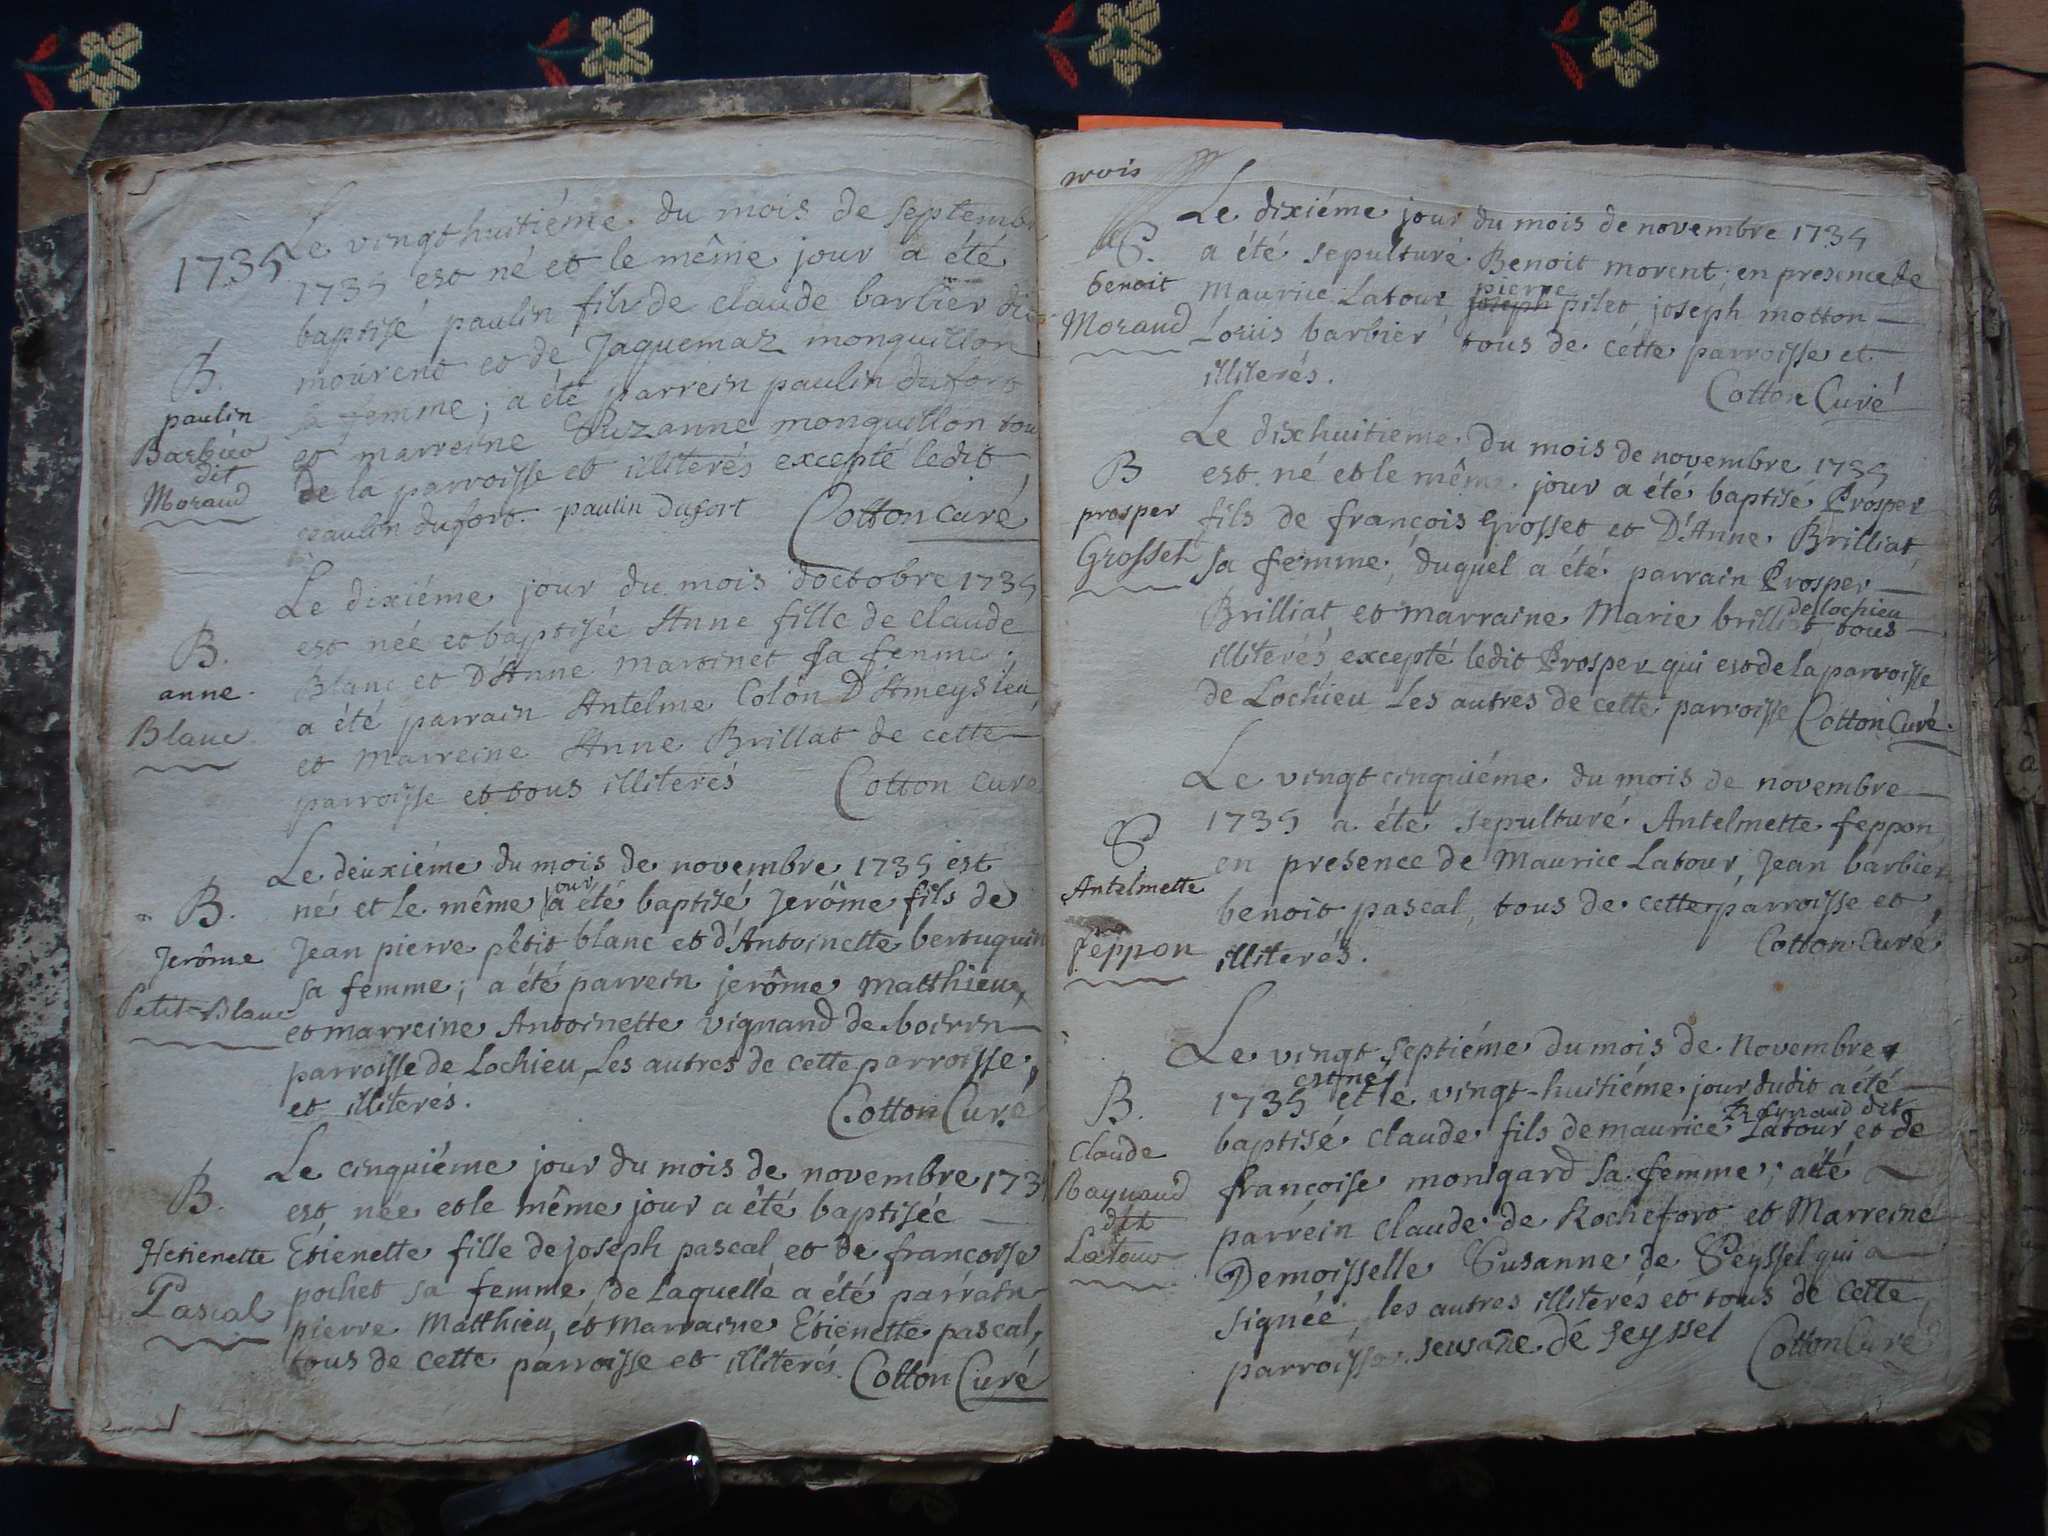 1735
Le vingt huitiéme du mois de septemb
1735 est né et le même jour a été
baptisé paulin fils de claude barbier dit
mourent et de Jaquemaz monquillon
sa femme; a été parrein paulin dufort
et marreine Suzanne monquillon tou
de la parroisse et illiterés excepté ledit
paulin dufort. paulin dufort Cotton curé
B.
paulin
Barbier
dit
Moraud
Le dixiéme jour du mois d'octobre 1735
est née et baptisée Anne fille de claude
Blanc et D'Anne martinet sa femme;
a été parrain Antelme Colon D'Ameysieu
et marreine Anne Brillat de cette
parroisse et tous illiterés Cotton curé
B.
anne
Blanc
Le deuxiéme du mois de novembre 1735 est
né et le même jour a été baptisé Jerôme fils de
Jean pierre petit blanc et d'Antoinette bertuquin
sa femme; a été parrein jerôme Matthieu,
et marreine Antoinette vignand de boirin
parroisse de Lochieu, Les autres de cette parroisse,
et illiterés. Cotton Curé
B.
Jerôme
Petit-Blanc
Le cinquiéme jour du mois de novembre 173
est née et le même jour a été baptisée
Etienette fille de joseph pascal et de francoise
pochet sa femme, de Laquelle a été parrain
pierre Matthieu, et Marraine Etienette pascal,
tous de cette parroisse et illiterés. Cotton Curé
B.
Hetienette
Pascal
Le dixiéme jour du mois de novembre 1735
a été sepulturé Benoit morent; en presence de
Maurice Latour, joseph pierre pilet, joseph motton
Louis barbier tous de cette parroisse et
illiterés.
Cotton Curé
S.
benoit
Moraud
Le dixhuitieme du mois de novembre 1735
est né et le même jour a été baptisé Prosper
fils de françois Grosset et D'Anne Brilliat
sa femme, duquel a été parrain Prosper
Brilliat et marraine Marie brilliat de lochieu tous
illiterés excepté ledit Prosper qui est de la parroisse
de Lochieu Les autres de cette parroisse Cotton Curé.
B
prosper
Grosset
Le vingt cinquiéme du mois de novembre
1735 a été sepulturé Antelmette feppon
en presence de Maurice Latour, Jean barbier
benoit pascal, tous de cette parroisse et
illiterés. Cotton Curé
S
Antelmette
feppon
Le vingt septiéme du mois de Novembre
1735 est né et le vingt-huitiéme jour dudit a été
baptisé claude fils de maurice Raynaud dit Latour et de
françoise mongard sa femme; a été
parrein claude de Rochefort et Marreine
Demoisselle Susanne de Seyssel qui a
signée, les autres illiterés et tous de cette
parroisse. seusane de seyssel Cotton Curé
B.
Claude
Raynaud
dit
Latour